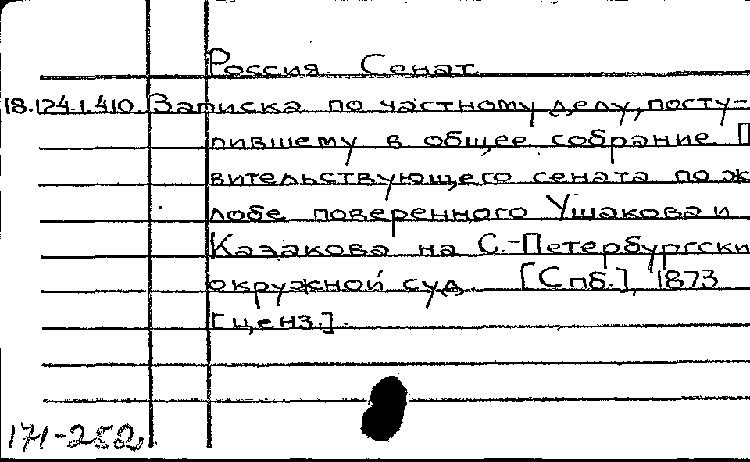 Россия Сенат
18.124.1.410. Записка по частному делу, посту-
пившему в общее собрание П
вительствующего сената по ж
лобе поверенного Ушакова и
Казакова на С.-Петербургски
окружной суд [Спб.], 1873
[ценз.].
171-252.